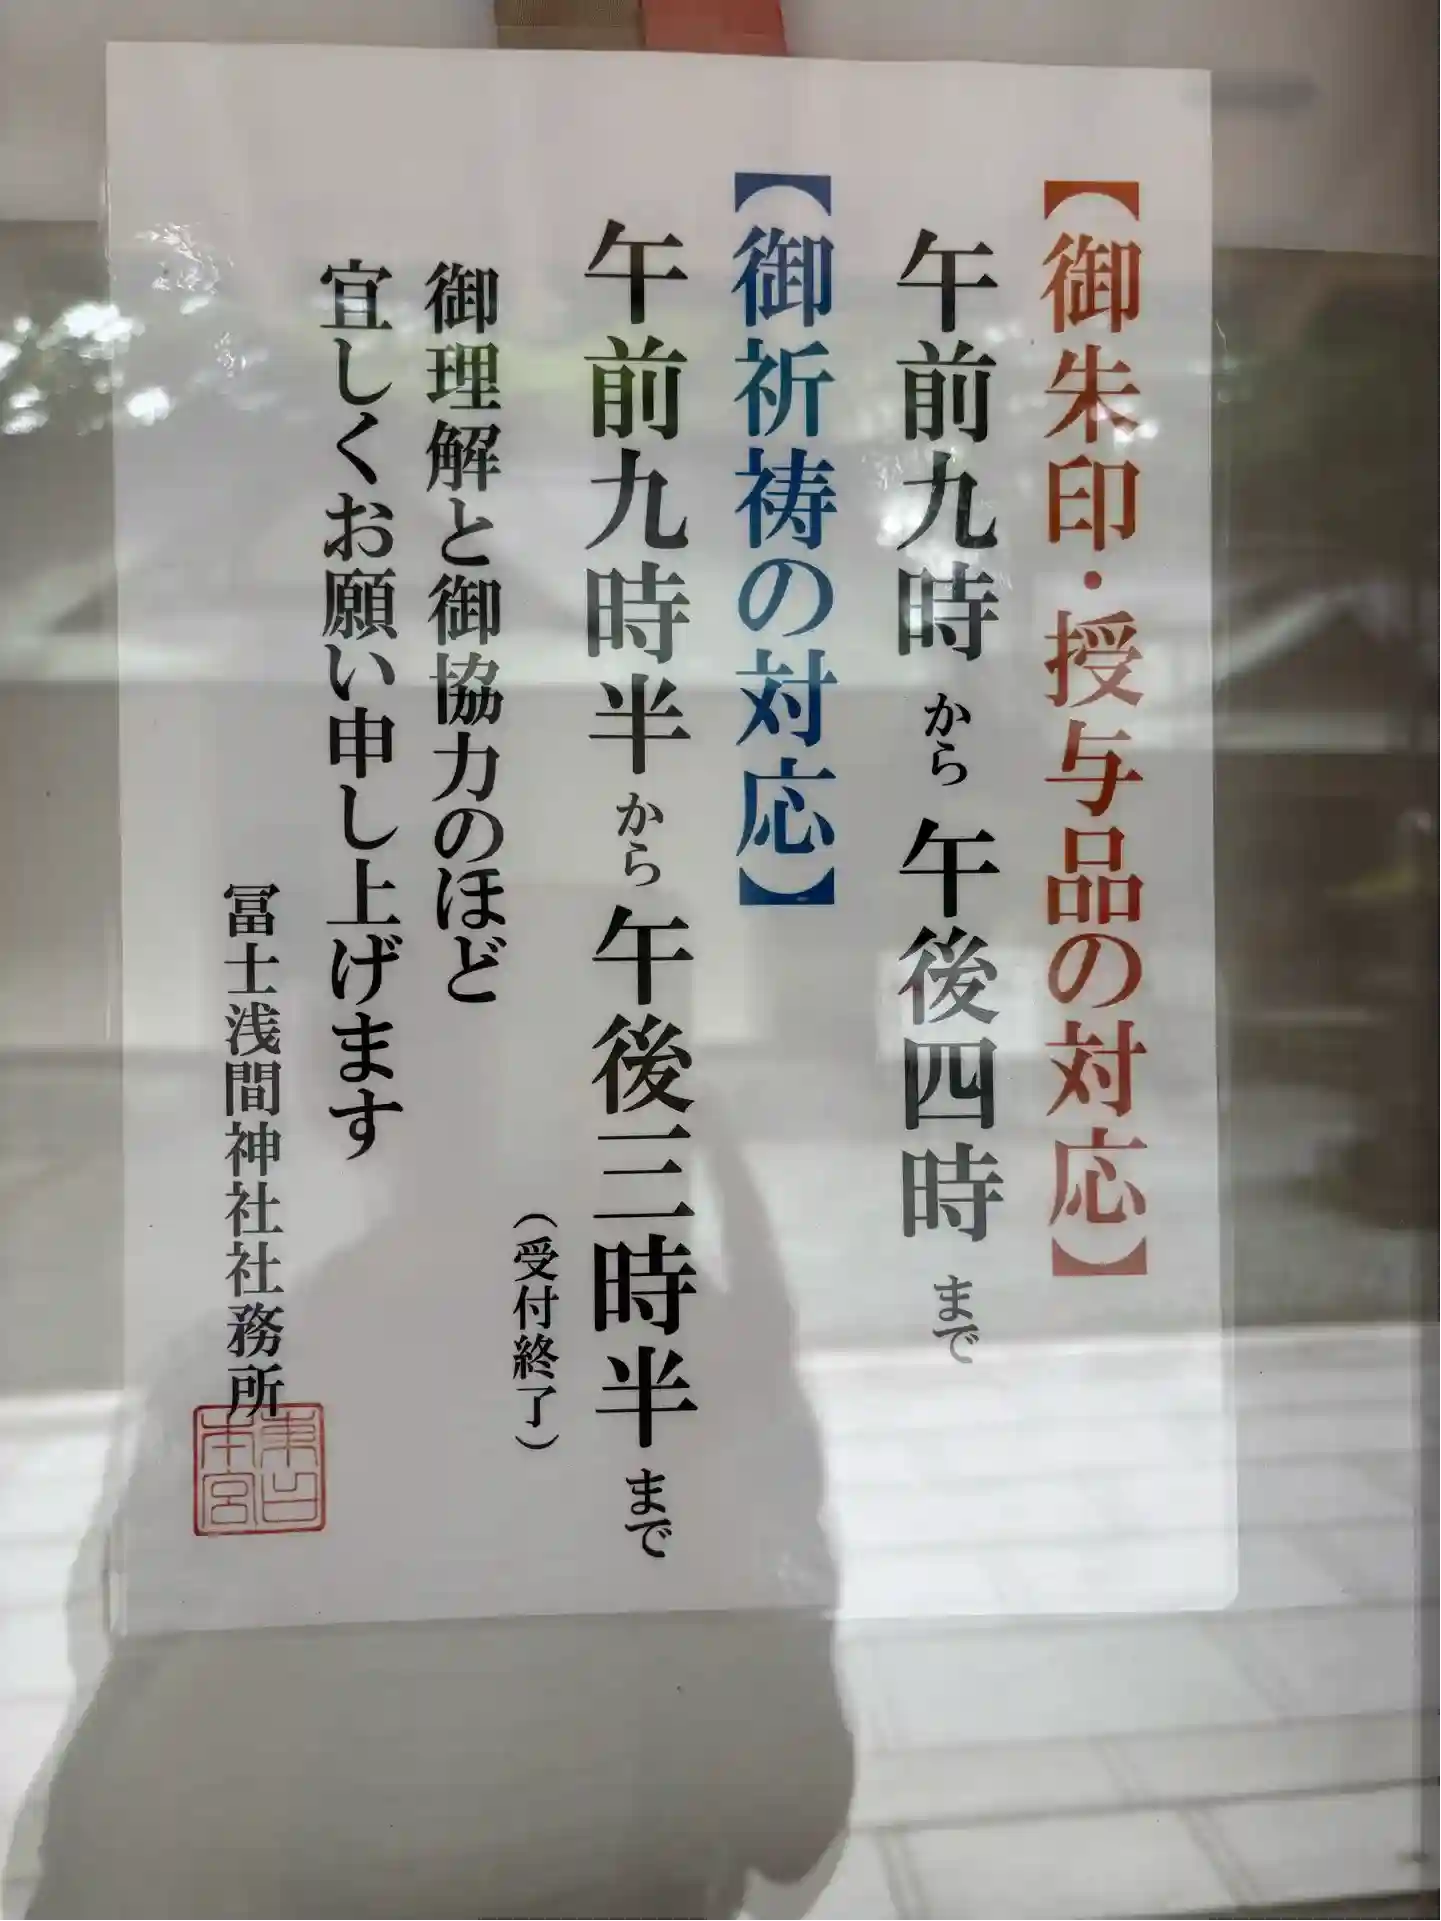 【御朱印・授与品の対応】
午前九時から午後四時まで
【御祈祷の対応】
午前九時半から午後三時半まで
（受付終了）
御理解と御協力のほど
宜しくお願い申し上げます
冨士浅間神社社務所
東口
本宮